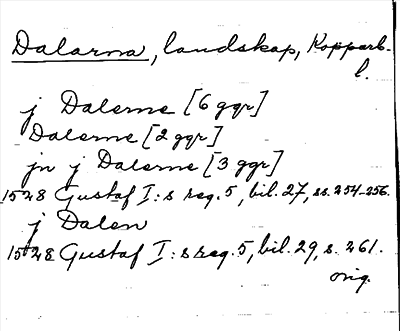 Dalarna, landskap, Kopparb.
l.
j Dalerne [6 ggr]
Dalerne [2 ggr]
jn j Dalerne [3 ggr]
1528 Gustaf I:s reg. 5, bil. 27, ss. 254-256.
j Dalen
1528 Gustaf I:s reg. 5, bil. 29, s. 261.
orig.